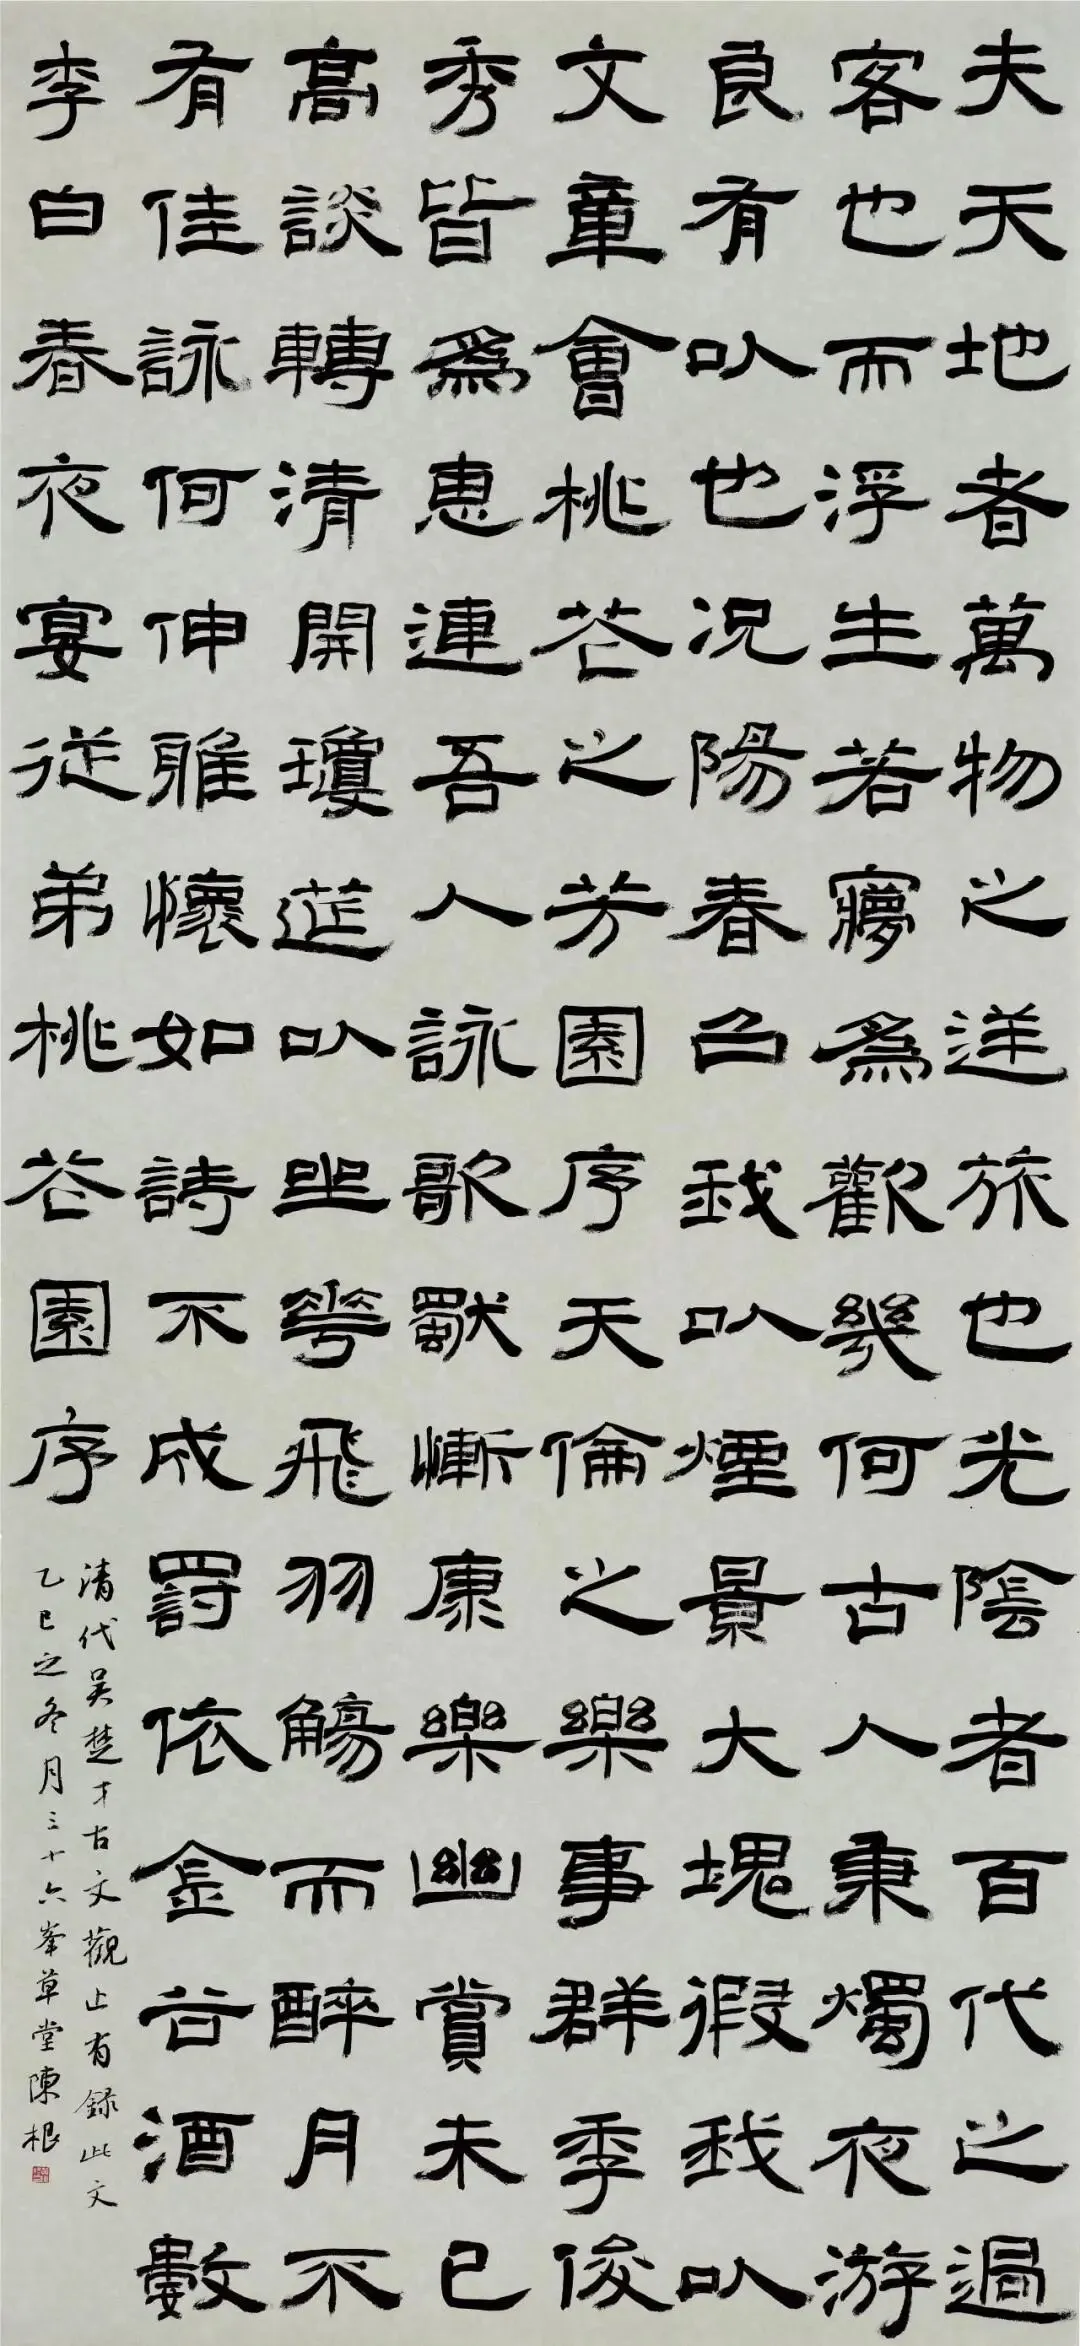 夫天地者萬物之逆旅也光陰者百代之過
客也而浮生若夢為歡幾何古人秉燭夜游
良有以也况陽春召我以煙景大塊假我以
文章會桃花之芳園序天倫之樂事群季俊
秀皆為惠連吾人詠歌獨慚康樂幽賞未已
高談轉清開瓊筵以坐華飛羽觴而醉月不
有佳詠何伸雅懷如詩不成罰依金谷酒數
李白春夜宴從弟桃花園序
清代吳楚才古文觀止有錄此文
乙巳之冬月三十六峯草堂陳根